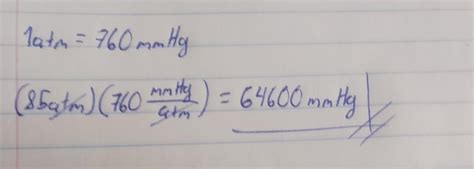 1atm = 760 mmHg
(85atm)(760 mmHg/atm) = 64600 mmHg